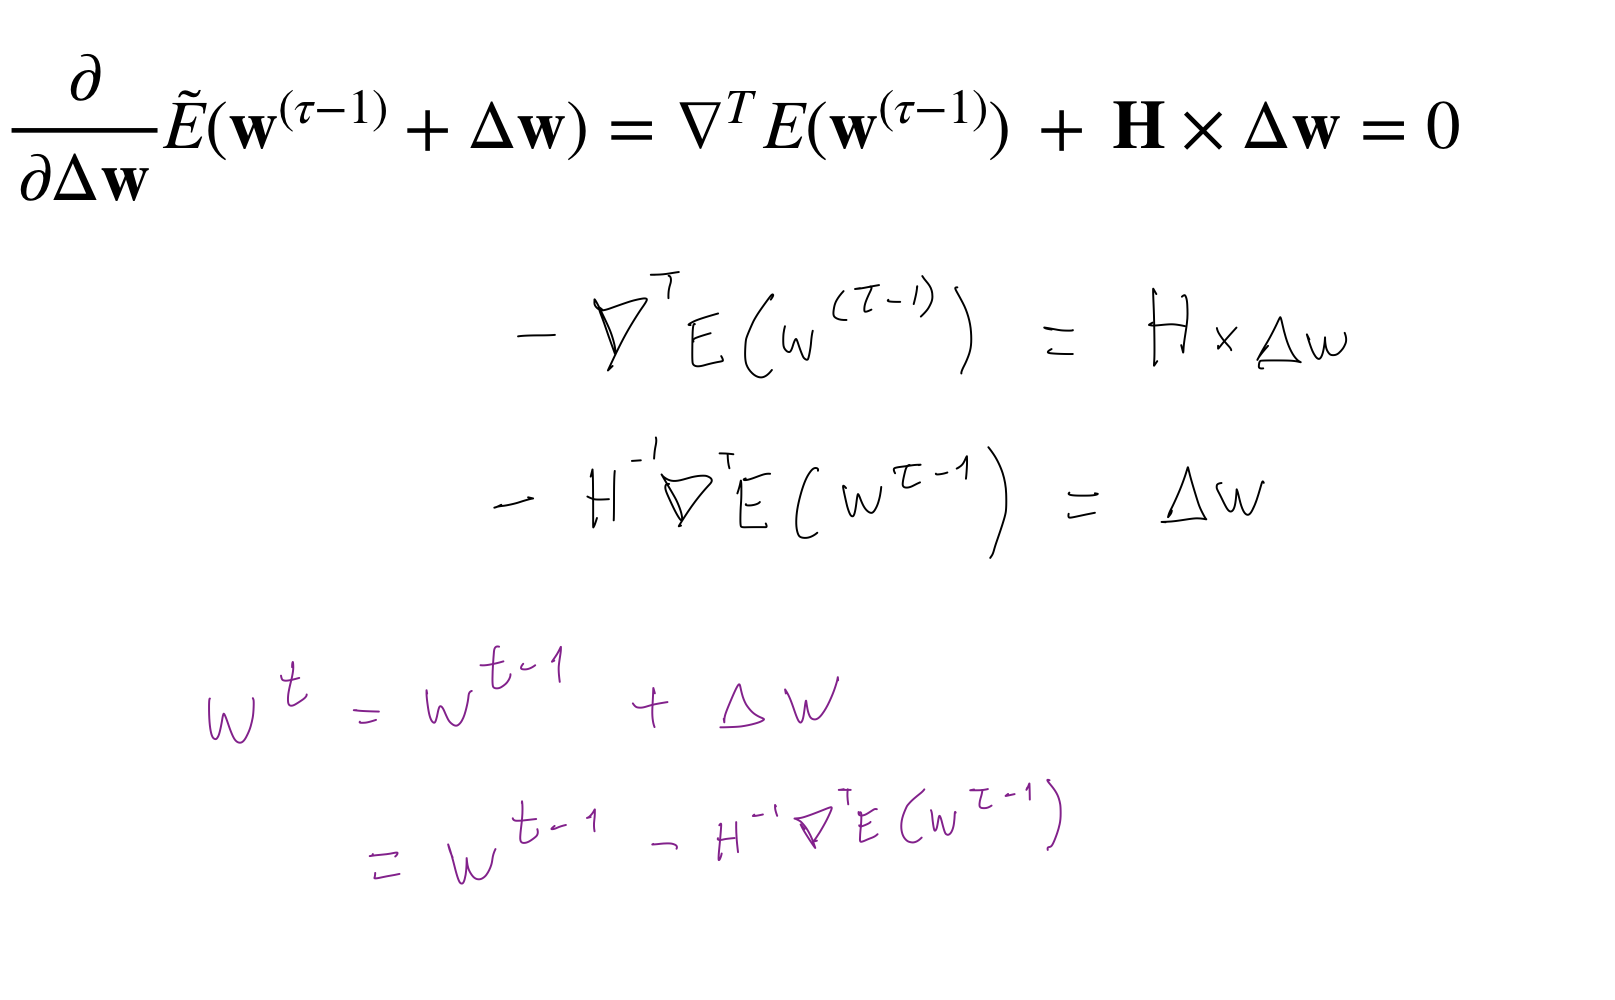 ∂/∂Δw Ẽ(w^(τ−1) + Δw) = ∇^T E(w^(τ−1)) + H × Δw = 0
− ∇^T E(w^(τ−1)) = H × Δw
− H^−1 ∇^T E(w^τ−1) = Δw
w^t = w^t−1 + Δw
= w^t−1 − H^−1 ∇^T E(w^τ−1)